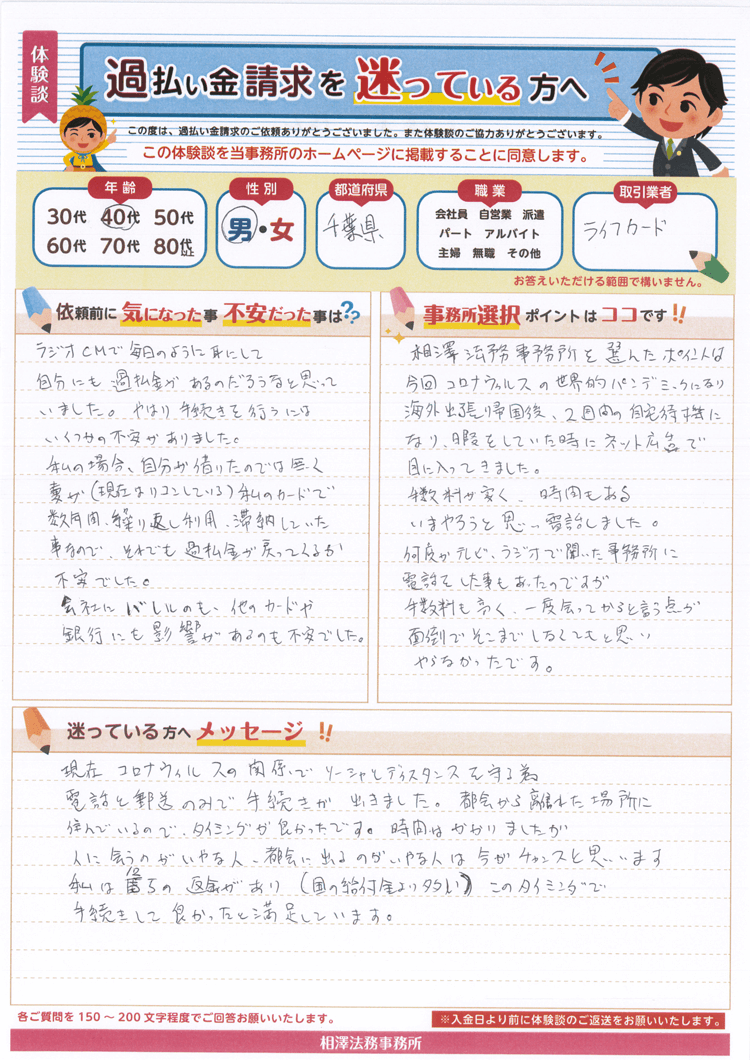 体験談
過払い金請求を 迷っている 方へ
この度は、過払い金請求のご依頼ありがとうございました。また体験談のご協力ありがとうございます。
この体験談を当事務所のホームページに掲載することに同意します。
年齢
30代 40代 50代
60代 70代 80代以上
性別
男・女
都道府県
千葉県
職業
会社員 自営業 派遣
パート アルバイト
主婦 無職 その他
取引業者
ライフカード
お答えいただける範囲で構いません。
依頼前に 気になった事 不安だった事は??
ラジオCMで毎日のように耳にして
自分にも過払金があるのだろうなと思って
いました。やはり手続きを行うには
いくつかの不安がありました。
私の場合、自分が借りたのでは無く
妻が(現在はリコンしている)私のカードで
数ヶ月間、繰り返し利用、滞納していた
事なので、それでも過払金が戻ってくるか
不安でした。
会社にバレルのも、他のカードや
銀行にも影響があるのも不安でした。
事務所選択 ポイントは ココです!!
相澤法務事務所を選んたポイントは
今回コロナウィルスの世界的パンデミックになり
海外出張り帰国後、2週間の自宅待機に
なり、暇をしていた時にネット広告で
目に入ってきました。
手数料が安く、時間もある
いまやろうと思い電話しました。
何度かテレビ、ラジオで聞いた事務所に
電話をした事もあったのですが
手数料も高く、一度会ってからと言う点が
面倒でそこまでしなくてもと思い
やらなかったです。
迷っている方へ メッセージ!!
現在 コロナウィルスの関係でソーシャルディスタンスを守る為
電話と郵送のみで手続きが出きました。都会から離れた場所に
住んでいるので、タイミングが良かったです。時間はかかりましたが
人に会うのがいやな人、都会に出るのがいやな人は今がチャンスと思います
私は 12万5の返金があり(国の給付金より多い)このタイミングで
手続きして良かったと満足しています。
各ご質問を150～200文字程度でご回答お願いいたします。
※入金日より前に体験談のご返送をお願いいたします。
相澤法務事務所